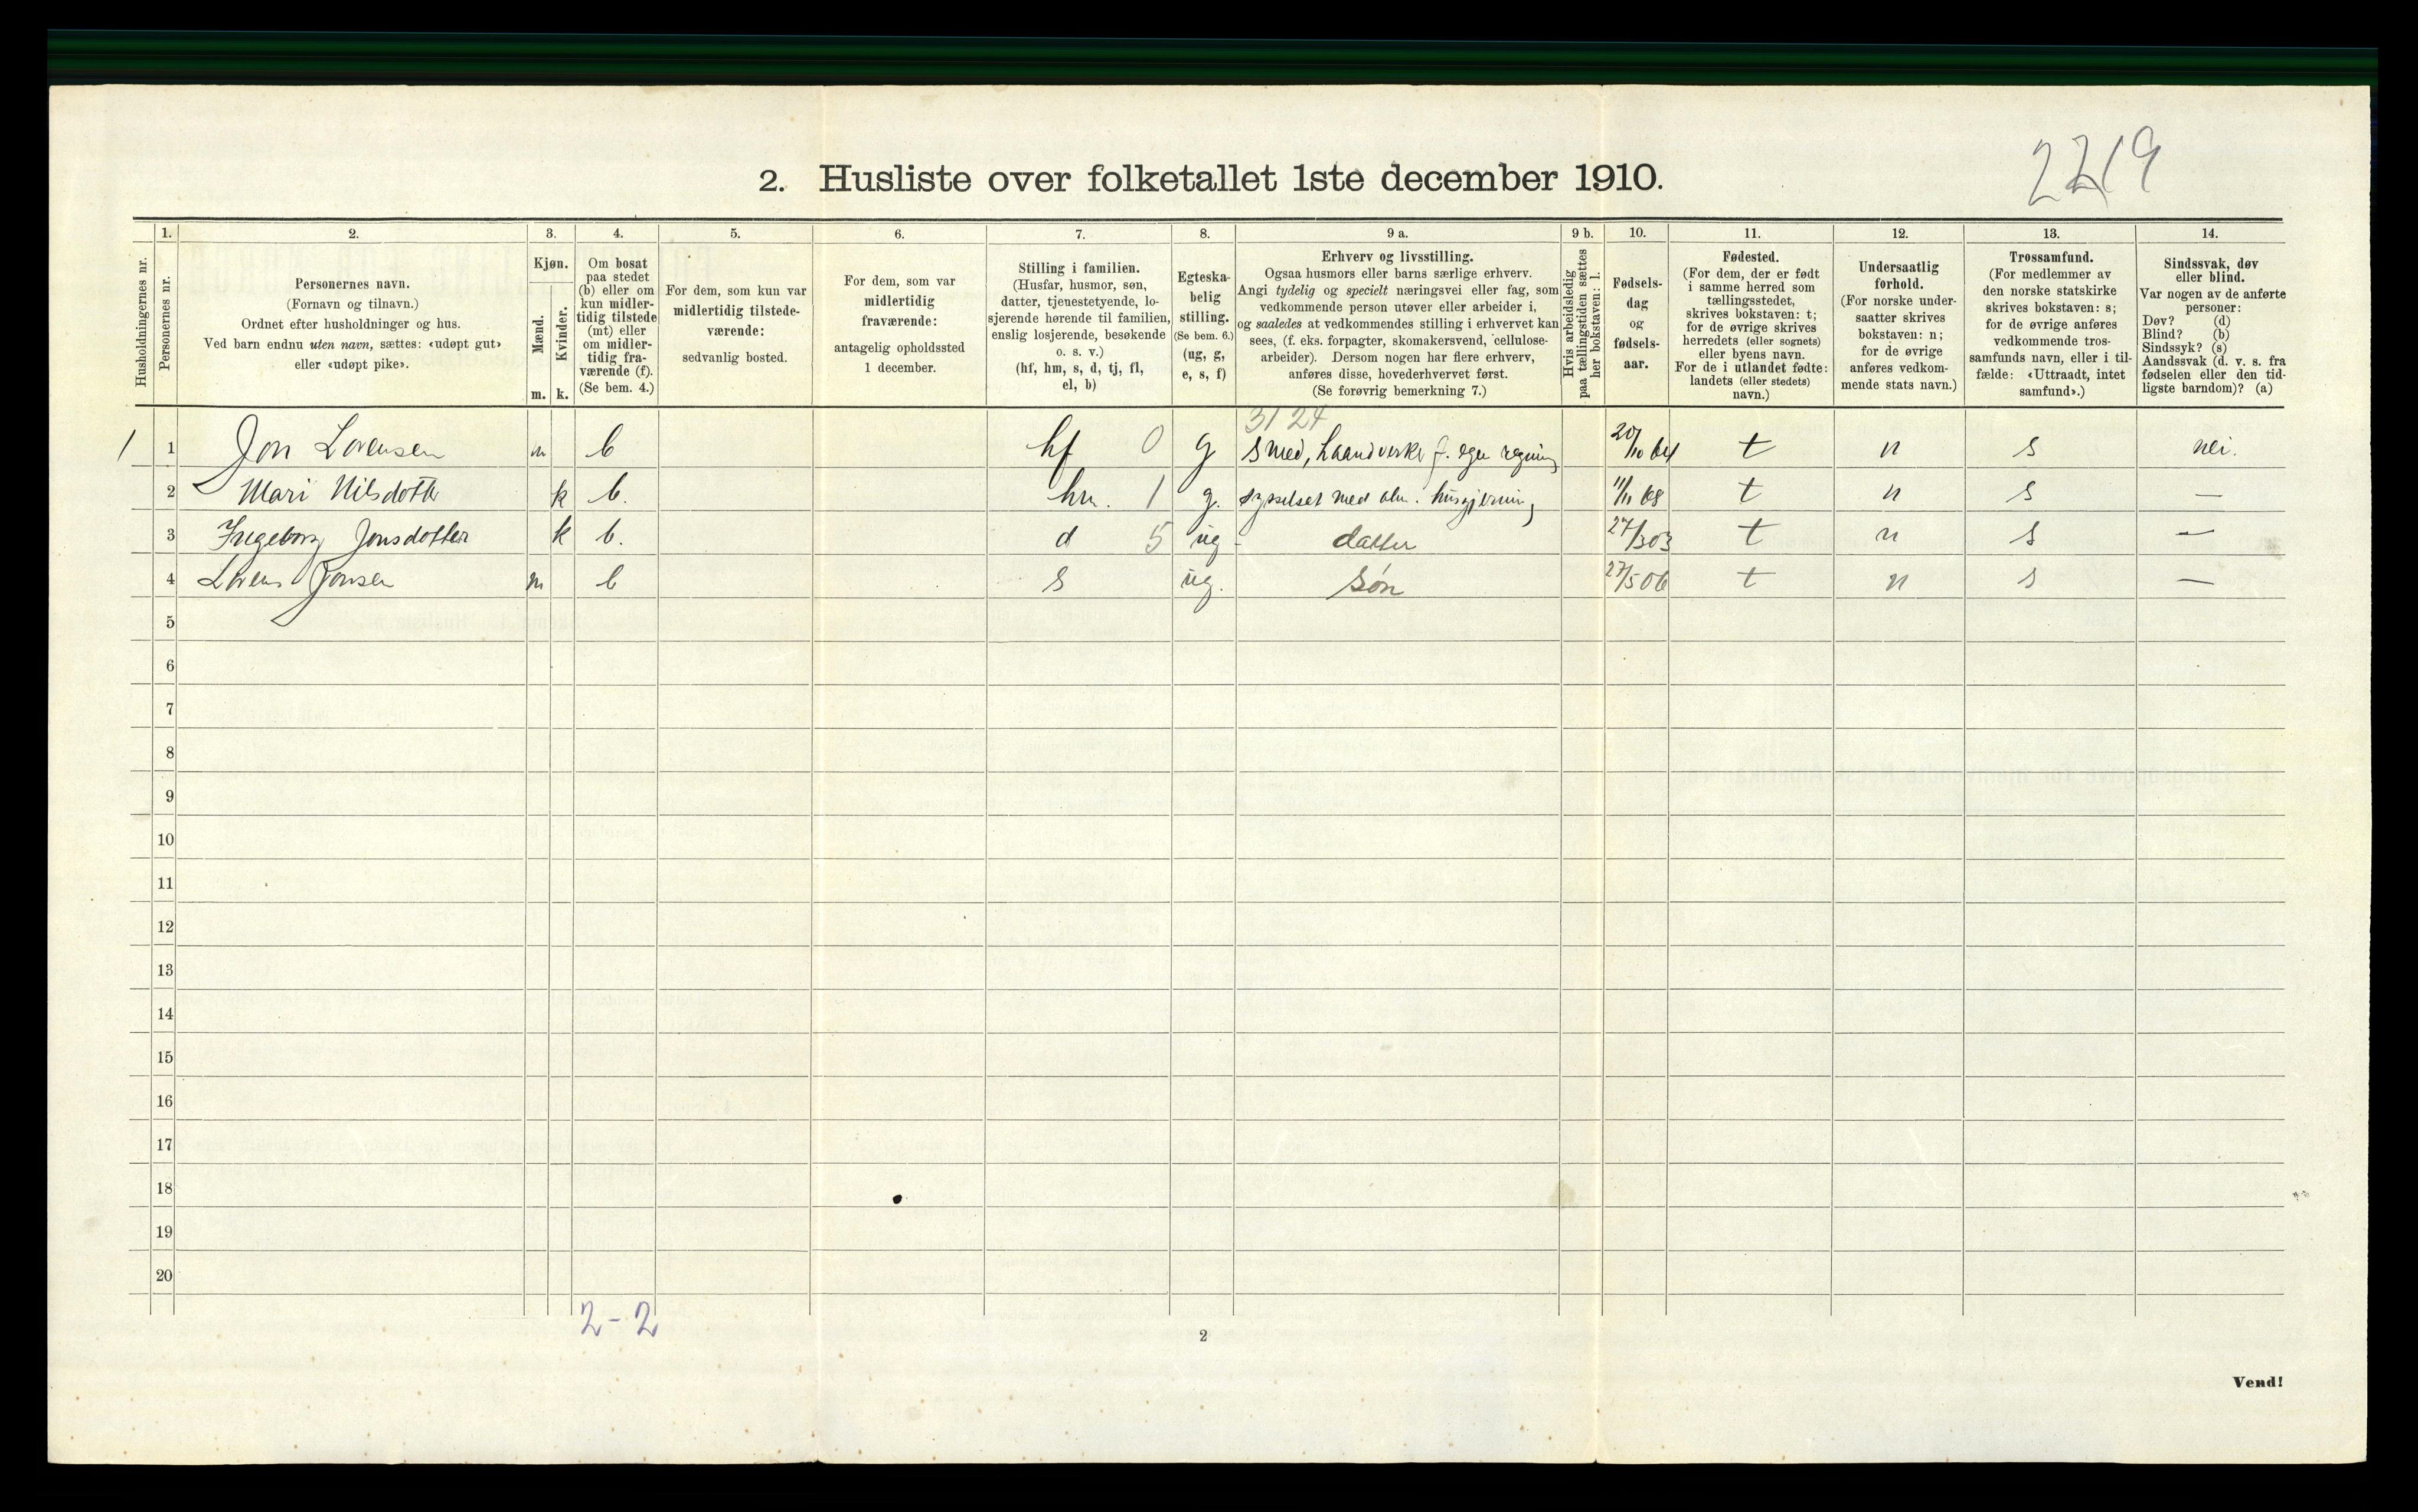 2219
2. Husliste over folketallet 1ste december 1910.
Husholdningernes nr.
1.
Personernes nr.
2.
Personernes navn.
(Fornavn og tilnavn.)
Ordnet efter husholdninger og hus.
Ved barn endnu uten navn, sættes: «udøpt gut»
eller «udøpt pike».
3.
Kjøn.
Mænd.
Kvinder.
m. k.
4.
Om bosat
paa stedet
(b) eller om
kun midler-
tidig tilstede
(mt) eller
om midler-
tidig fra-
værende (f).
(Se bem. 4.)
5.
For dem, som kun var
midlertidig tilstede-
værende:
sedvanlig bosted.
6.
For dem, som var
midlertidig
fraværende:
antagelig opholdssted
1 december.
7.
Stilling i familien.
(Husfar, husmor, søn,
datter, tjenestetyende, lo-
sjerende hørende til familien,
enslig losjerende, besøkende
o. s. v.)
(hf, hm, s, d, tj, fl,
el, b)
8.
Egteska-
belig
stilling.
(Se bem. 6.)
(ug, g,
e, s, f)
9 a.
Erhverv og livsstilling.
Ogsaa husmors eller barns særlige erhverv.
Angi tydelig og specielt næringsvei eller fag, som
vedkommende person utøver eller arbeider i,
og saaledes at vedkommendes stilling i erhvervet kan
sees, (f. eks. forpagter, skomakersvend, cellulose-
arbeider). Dersom nogen har flere erhverv,
anføres disse, hovederhvervet først.
(Se forøvrig bemerkning 7.)
9 b.
Hvis arbeidsledig
paa tællingstiden sættes
her bokstaven: l.
10.
Fødsels-
dag
og
fødsels-
aar.
11.
Fødested.
(For dem, der er født
i samme herred som
tællingsstedet,
skrives bokstaven: t;
for de øvrige skrives
herredets (eller sognets)
eller byens navn.
For de i utlandet fødte:
landets (eller stedets)
navn.)
12.
Undersaatlig
forhold.
(For norske under-
saatter skrives
bokstaven: n;
for de øvrige
anføres vedkom-
mende stats navn.)
13.
Trossamfund.
(For medlemmer av
den norske statskirke
skrives bokstaven: s;
for de øvrige anføres
vedkommende tros-
samfunds navn, eller i til-
fælde: «Uttraadt, intet
samfund».)
14.
Sindssvak, døv
eller blind.
Var nogen av de anførte
personer:
Døv? (d)
Blind? (b)
Sindssyk? (s)
Aandssvak (d. v. s. fra
fødselen eller den tid-
ligste barndom)? (a)
3124
1 1 Jon Lorensen m b hf 0 g smed, haandverker f. egen regning 20/10 64 t n s nei.
2 Mari Nilsdotter k b. hm. 1 g. sysselsat med alm. husgjerning 11/11 68 t n s —
3 Ingeborg Jonsdotter k b. d 5 ug - datter 27/3 03 t n s —
4 Lorens Jonsen m b s ug. søn 27/5 06 t n s —
5
6
7
8
9
10
11
12
13
14
15
16
17
18
19
20
2-2
2
Vend!